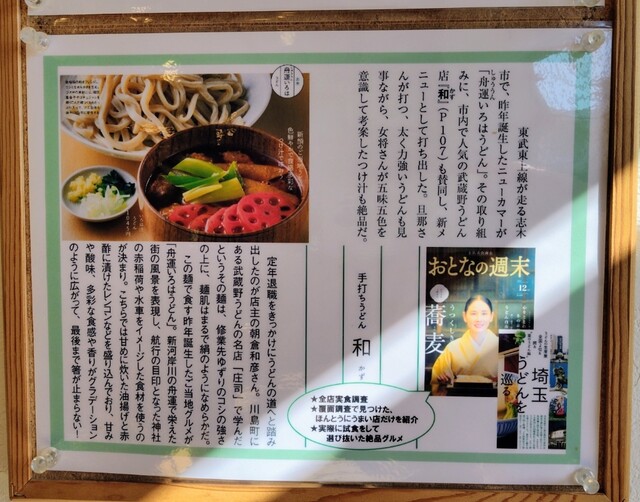 東武東上線が走る志木
市で、昨年誕生したニューカマーが
「舟運いろはうどん」。その取り組
みに、市内で人気の武蔵野うどん
店『和』(P107)も賛同し、新メ
ニューとして打ち出した。旦那さ
んが打つ、太く力強いうどんも見
事ながら、女将さんが五味五色を
意識して考案したつけ汁も絶品だ。
しゅううん
かず
手打ちうどん 和 かず
定年退職をきっかけにうどんの道へと踏み
出したのが店主の朝倉和彦さん。川島町に
ある武蔵野うどんの名店「庄司」で学んだ
というその麺は、修業先ゆずりのコシの強さ
の上に、麺肌はまるで絹のようになめらかだ。
この麺で食す昨年誕生したご当地グルメが
「舟運いろはうどん」。新河岸川の舟運で栄えた
街の風景を表現し、航行の目印となった神社
の赤稲荷や水車をイメージした食材を使うの
が決まり。こちらでは甘めに炊いた油揚げと赤
酢に漬けたレンコンなどを盛り込んでおり、甘み
や酸味、多彩な食感や香りがグラデーション
のように広がって、最後まで箸が止まらない!
舟運いろは
うどん
おとなの週末
12
蕎麦
埼玉
うどんを
巡る
★全店実食調査
★覆面調査で見つけた、
ほんとうにうまい店だけを紹介
★実際に試食をして
選び抜いた絶品グルメ